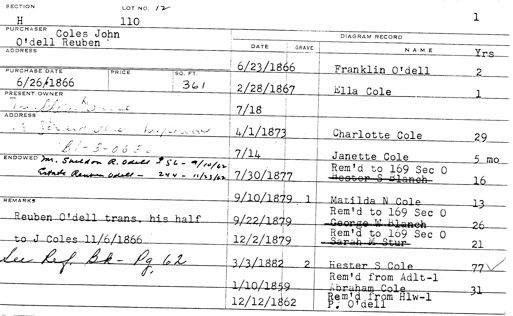 SECTION
LOT NO. 12
H
110
1
PURCHASER
Coles John
O'dell Reuben
DIAGRAM RECORD
ADDRESS
DATE
GRAVE
NAME
Yrs
6/23/1866 Franklin O'dell 2
PURCHASE DATE
PRICE
SQ. FT.
6/26/1866
361
2/28/1867 Ella Cole 1
PRESENT OWNER
7/18
ADDRESS
4/1/1873 Charlotte Cole 29
BI-5-0656
7/14 Janette Cole 5 mo
ENDOWED Mr. Sheldon R. Odell $56 - 9/10/62
Rem'd to 169 Sec O
Estate Reuben Odell - 244 - 11/23/62
7/30/1877 Hester S Blanch 16
REMARKS
9/10/1879 1 Matilda N Cole 13
Rem'd to 169 Sec O
Reuben O'dell trans, his half
9/22/1879 George W Blanch 26
Rem'd to 169 Sec O
to J Coles 11/6/1866
12/2/1879 Sarah M Stur 21
See Ref. Bk - Pg. 62
3/3/1882 2 Hester S Cole 77
Rem'd from Adlt-1
1/10/1859 Abraham Cole 31
Rem'd from Hlw-1
12/12/1862 P. O'dell